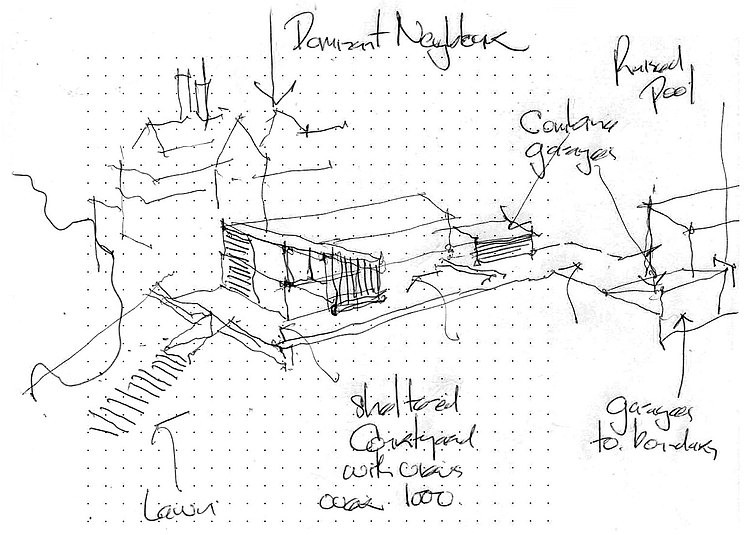 Dominant Neighbour
Raised
Pool
Combine
garages
sheltered
Courtyard
with views
over 1000.
garages
to boundary
Lawn